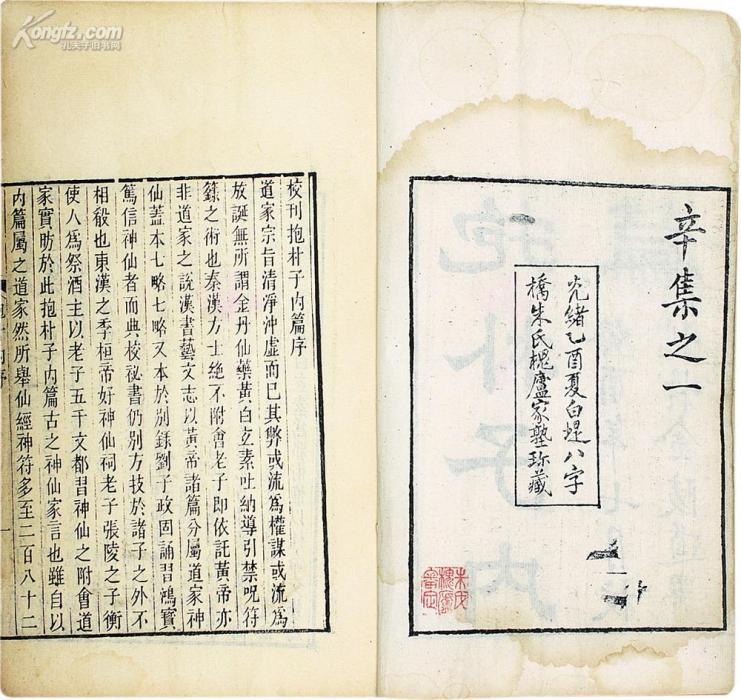 Kongfz.com
孔夫子旧书网
辛集之一
光緒乙酉夏白堤八字
橋朱氏槐廬家塾珍藏
校刊抱朴子内篇序
道家宗旨清淨沖虛而已其弊或流爲權謀或流爲
放誕無所謂金丹仙藥黃白玄素吐納導引禁呪符
籙之術也秦漢方士絶不附會老子即依託黃帝亦
非道家之說漢書藝文志以黃帝諸篇分屬道家神
仙蓋本七略七略又本於别錄劉子政固誦習鴻寶
篤信神仙者而典校祕書仍别方技於諸子之外不
相殽也東漢之季桓帝好神仙祠老子張陵之子衡
使人爲祭酒主以老子五千文都習神仙之附會道
家實昉於此抱朴子内篇古之神仙家言也雖自以
内篇屬之道家然所舉仙經神符多至二百八十二